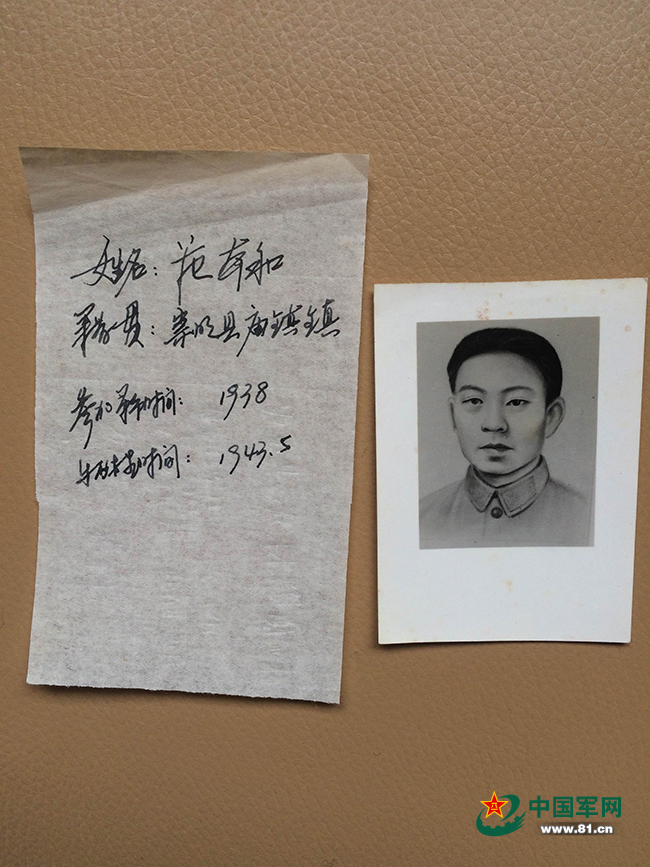 姓名：范存和
籍贯：崇明县庙镇镇
参加革命时间：1938
牺牲时间：1943.5
中国军网
www.81.cn